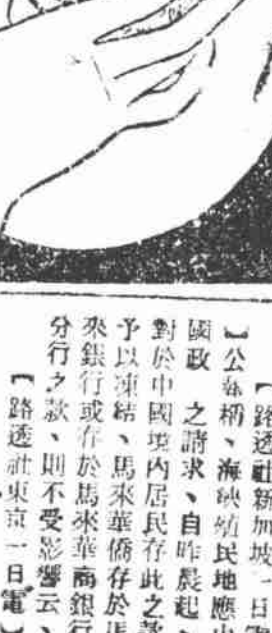 【路透社新加坡一日電
】公報稱、海峽殖民地應中
國政 之請求、自昨晨起、
對於中國境內居民存此之款
予以凍結、馬來華僑存於馬
來銀行或存於馬來華商銀行
分行之款、則不受影響云、
【路透社東京一日電】